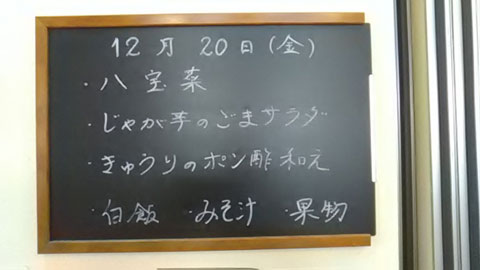 12月20日(金)
・八宝菜
・じゃが芋のごまサラダ
・きゅうりのポン酢和え
・白飯 ・みそ汁 ・果物